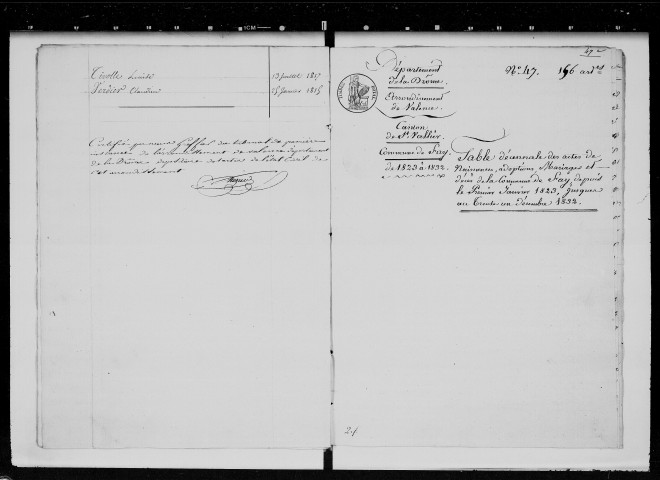 Verdier Claudine 25 Janvier 1815
Certifié par nous Greffier du tribunal de première
instance de l'arrondissement de Valence département
de la Drôme dépositaire des actes de l'état civil de
cet arrondissement
47
Département
de la Drôme.
Arrondissement
de Valence
Canton
de St Vallier
Commune de Fay.
de 1823 à 1832.
N° 47. 196
Table décennale des actes de
Naissances, adoptions, Mariages et
décès de la Commune de Fay, depuis
le Premier Janvier 1823, jusques
au Trente un décembre 1832.